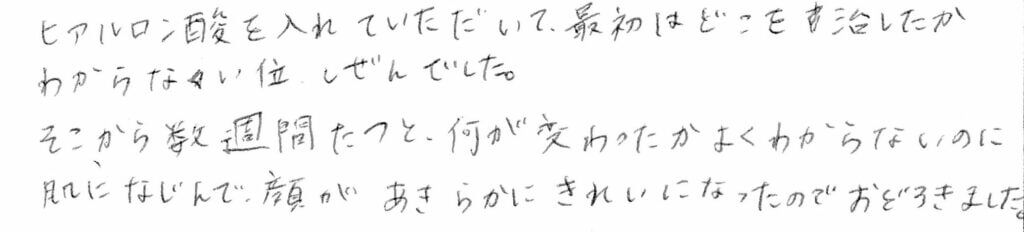 ヒアルロン酸を入れていただいて、最初はどこを治したか
わからない位しぜんでした。
そこから数週間たつと、何が変わったかよくわからないのに
肌になじんで、顔があきらかにきれいになったのでおどろきました。